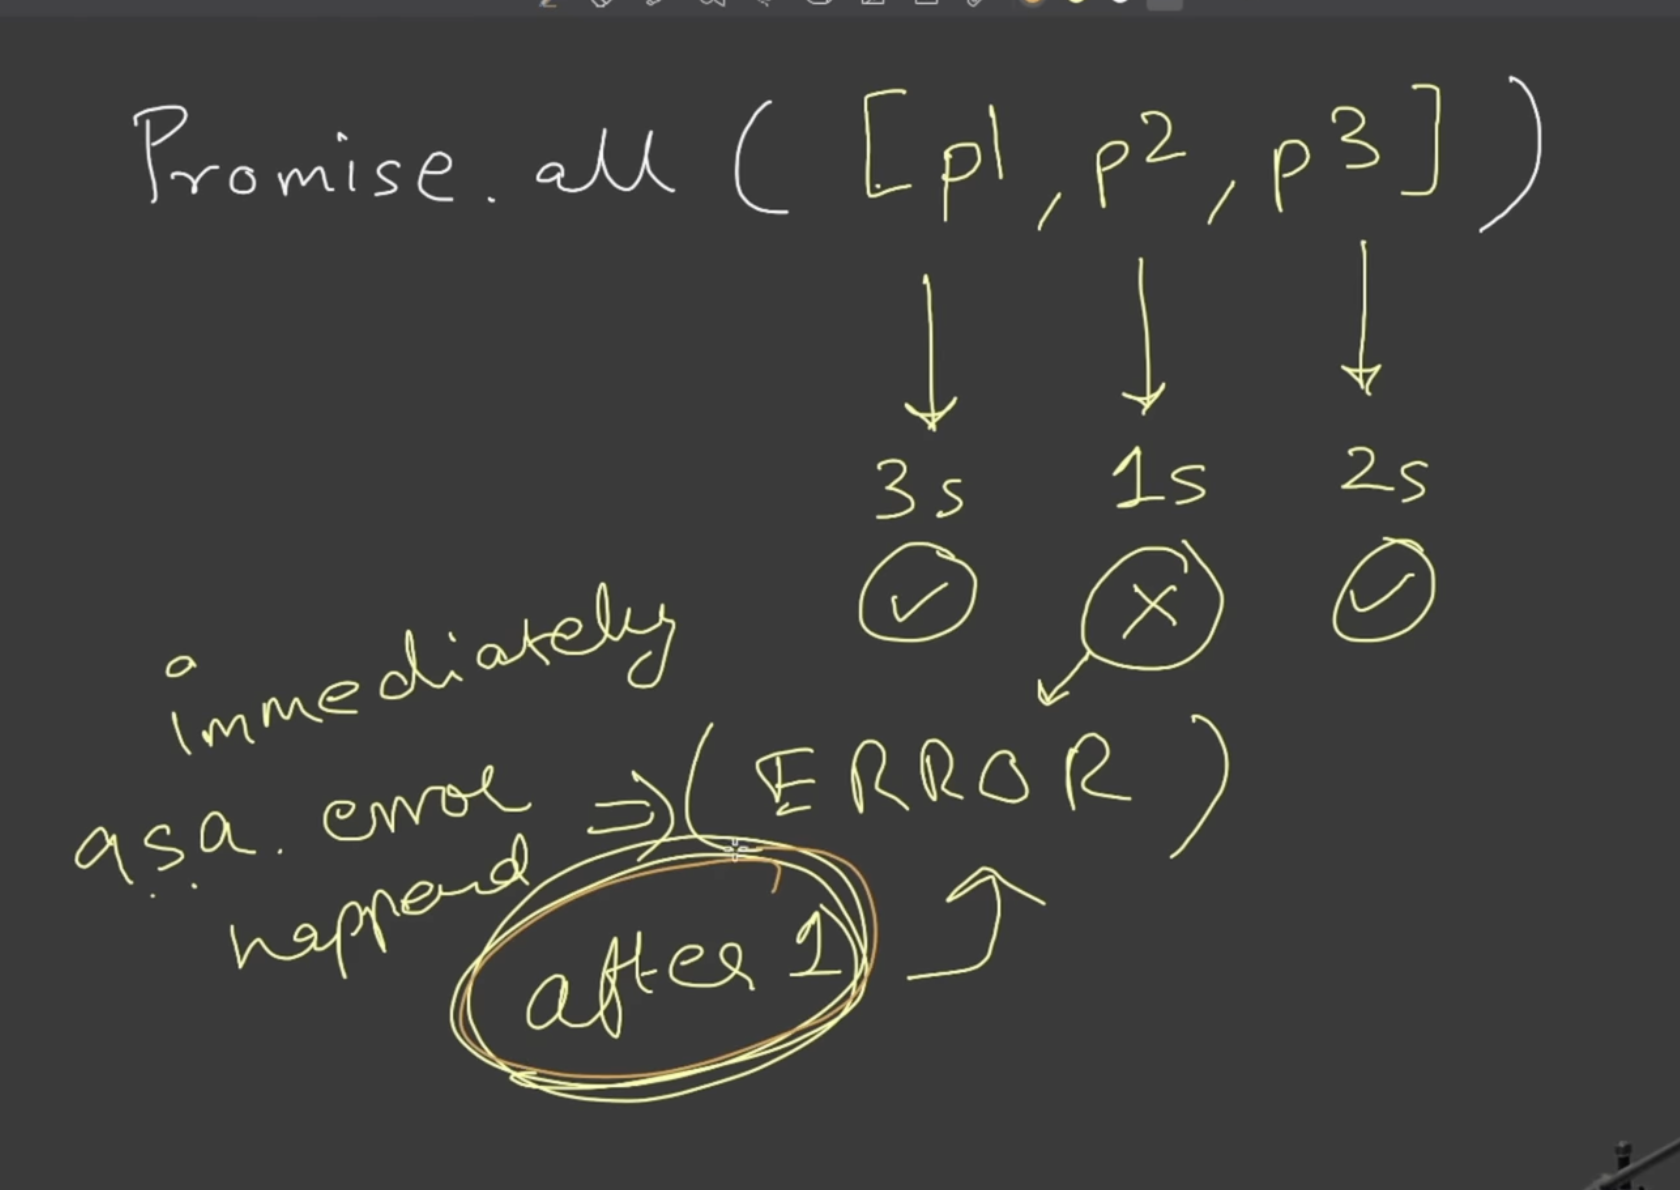 Promise.all ( [p1, p2, p3] )
3s 1s 2s
immediately
asa. error => (ERROR)
happend
after 1